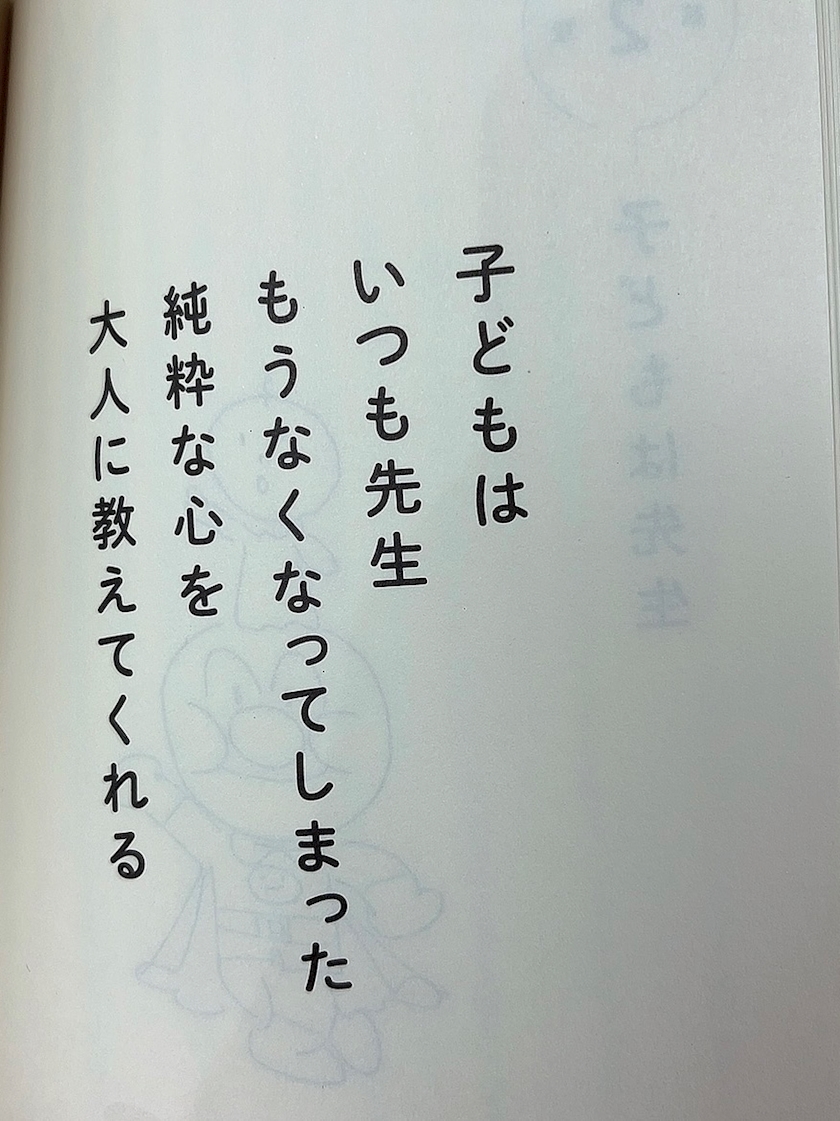 子どもは
いつも先生
もうなくなってしまった
純粋な心を
大人に教えてくれる
2
子どもは先生